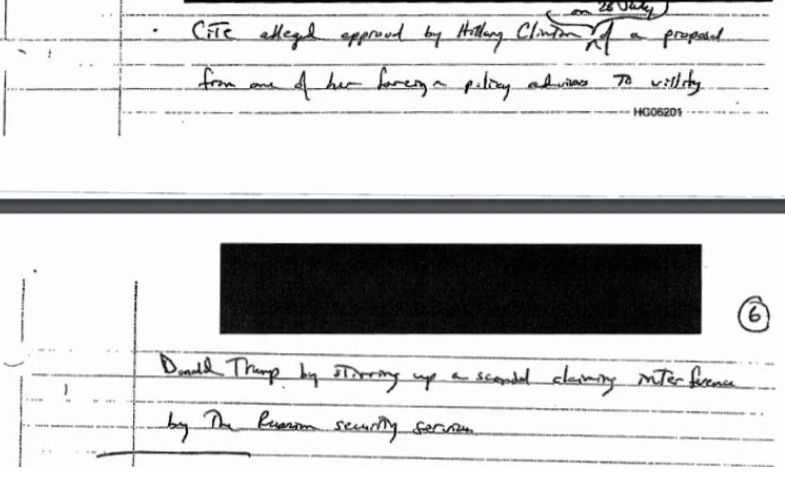 on 28 July
· CITE alleged approval by Hillary Clinton of a proposal
from one of her foreign policy advisors to vilify
HG06201
6
Donald Trump by stirring up a scandal claiming interference
by the Russian security services